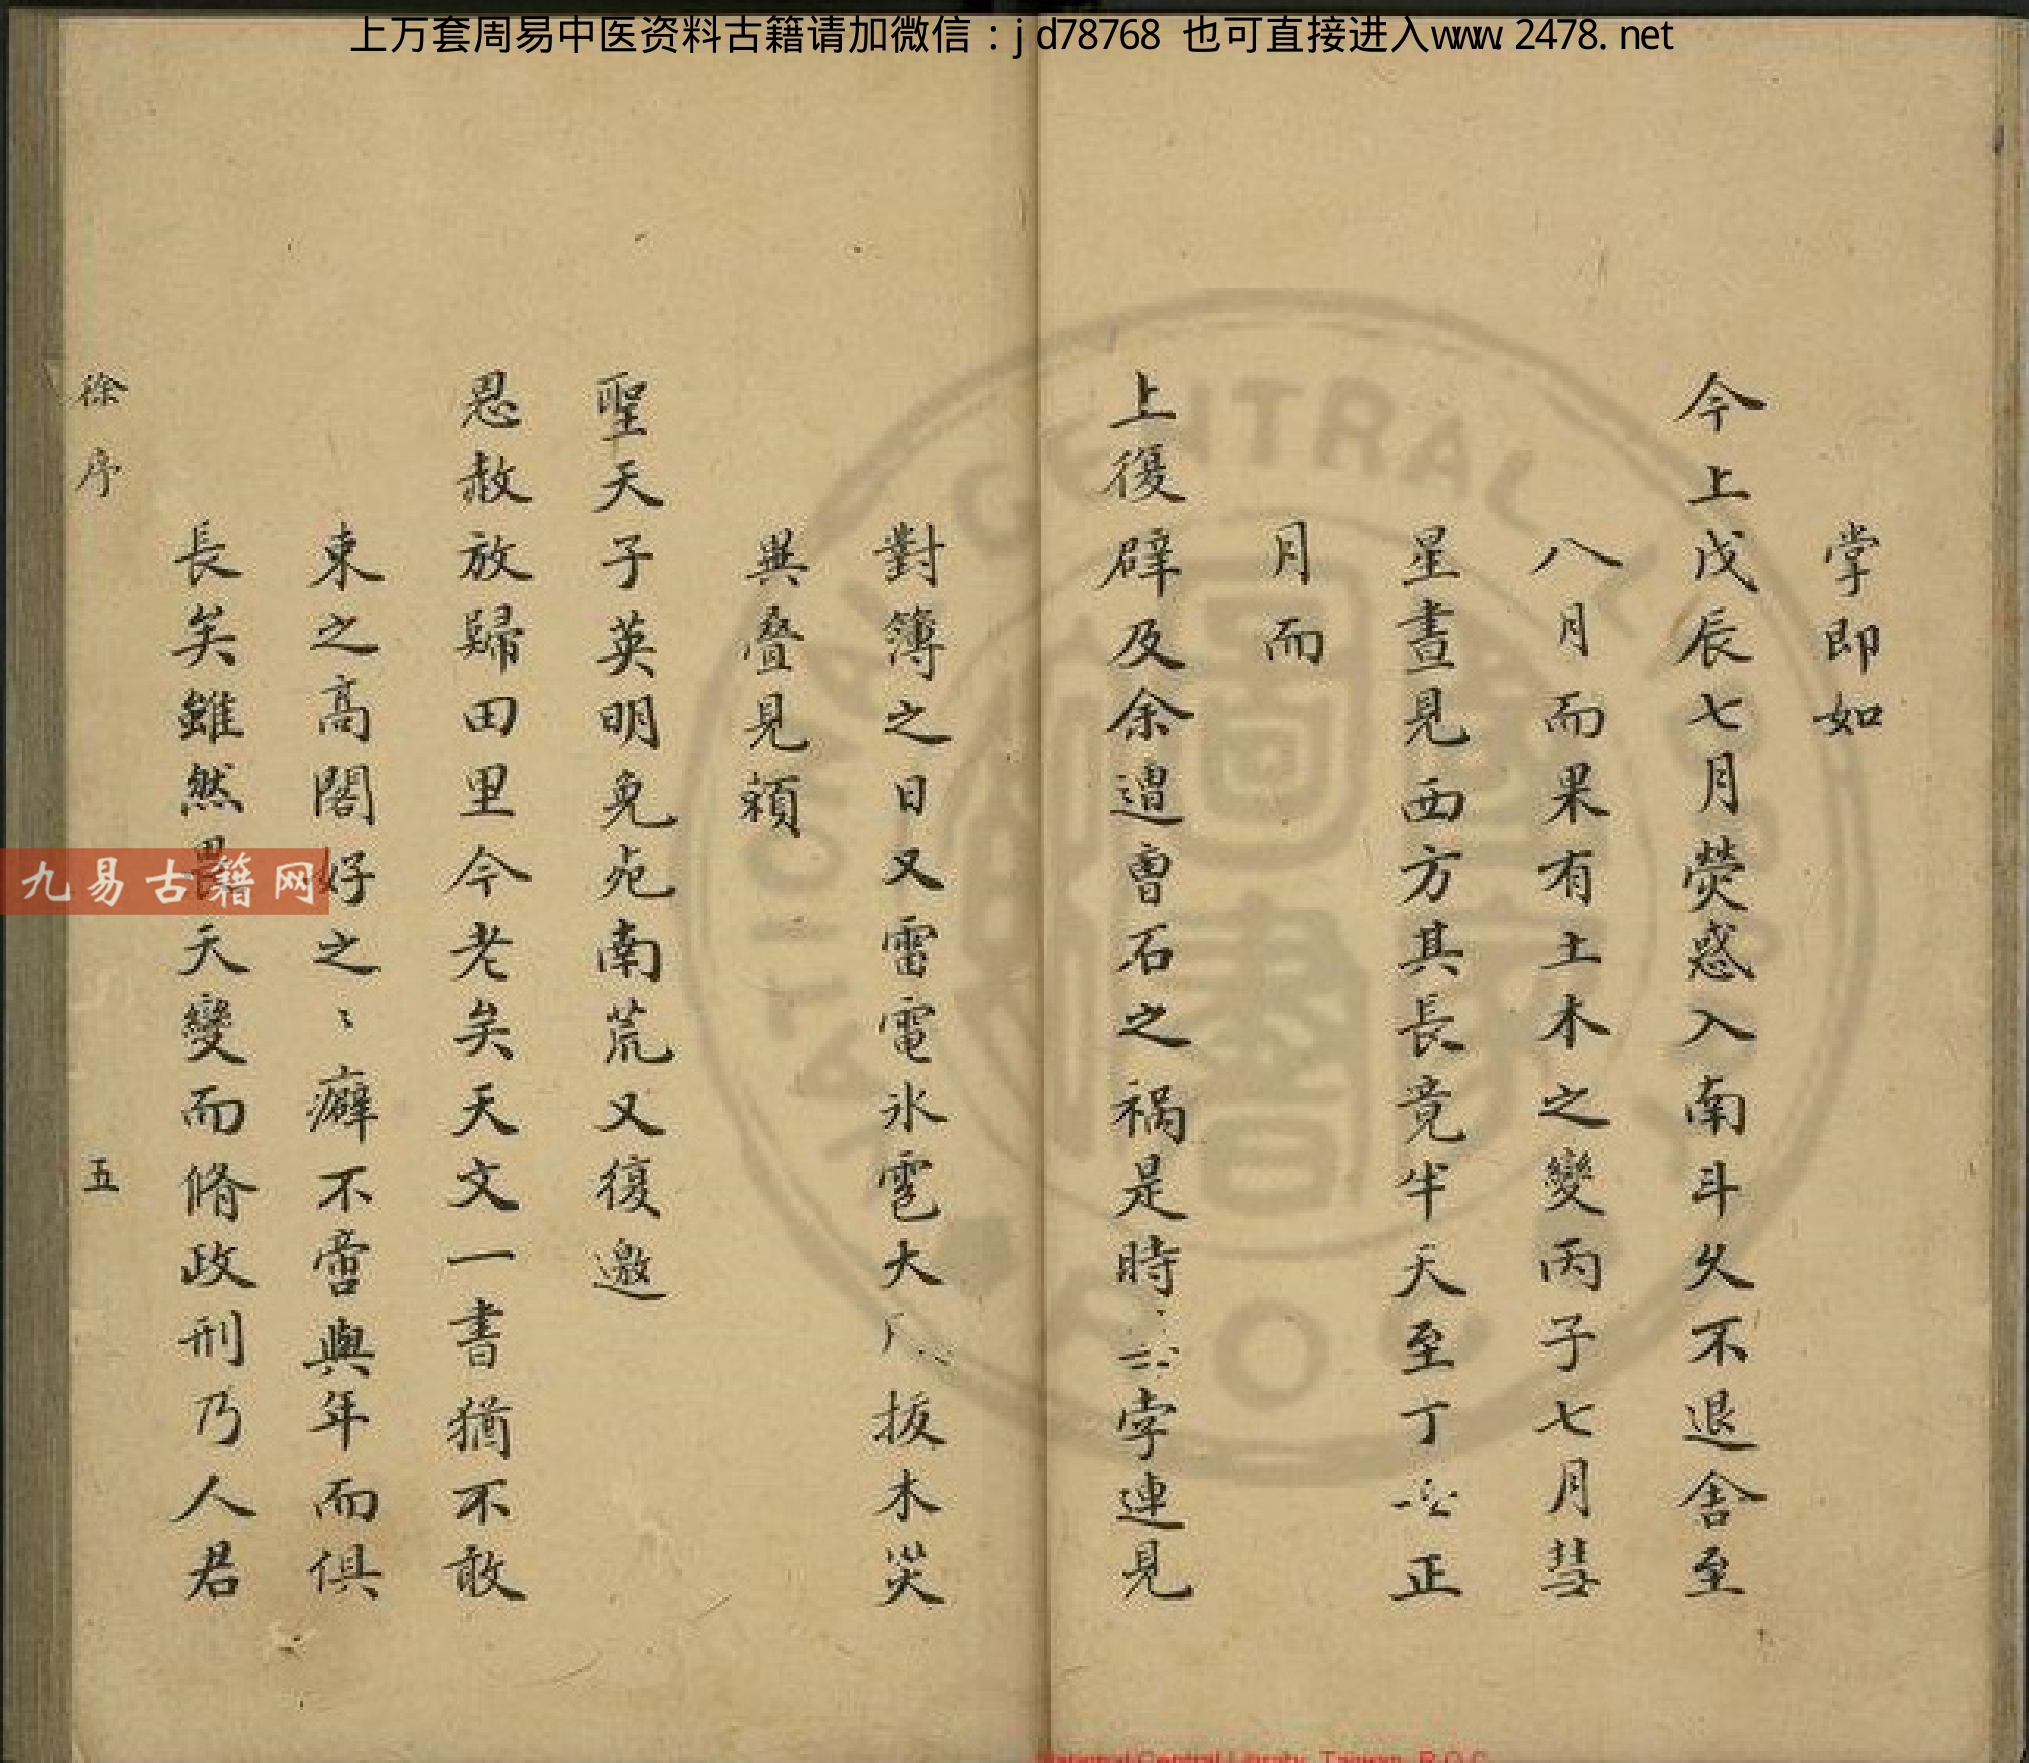 上万套周易中医资料古籍请加微信：jd78768 也可直接进入www.2478.net
掌即如
今上戊辰七月熒惑入南斗久不退舍至
八月而果有土木之變丙子七月彗
星晝見西方其長竟半天至丁 正
月而
上復辟及余遭曹石之禍是時 孛連見
對簿之日又雷電氷雹大 拔木災
異疊見頼
聖天子英明免死南荒又復邀
恩赦放歸田里今老矣天文一書猶不敢
束之高閣好之〻癖不啻與年而俱
長矣雖然畏天變而脩政刑乃人君
徐序
五
九易古籍网
National Central Library, Taiwan, R.O.C
NATIONAL CENTRAL LIBRARY